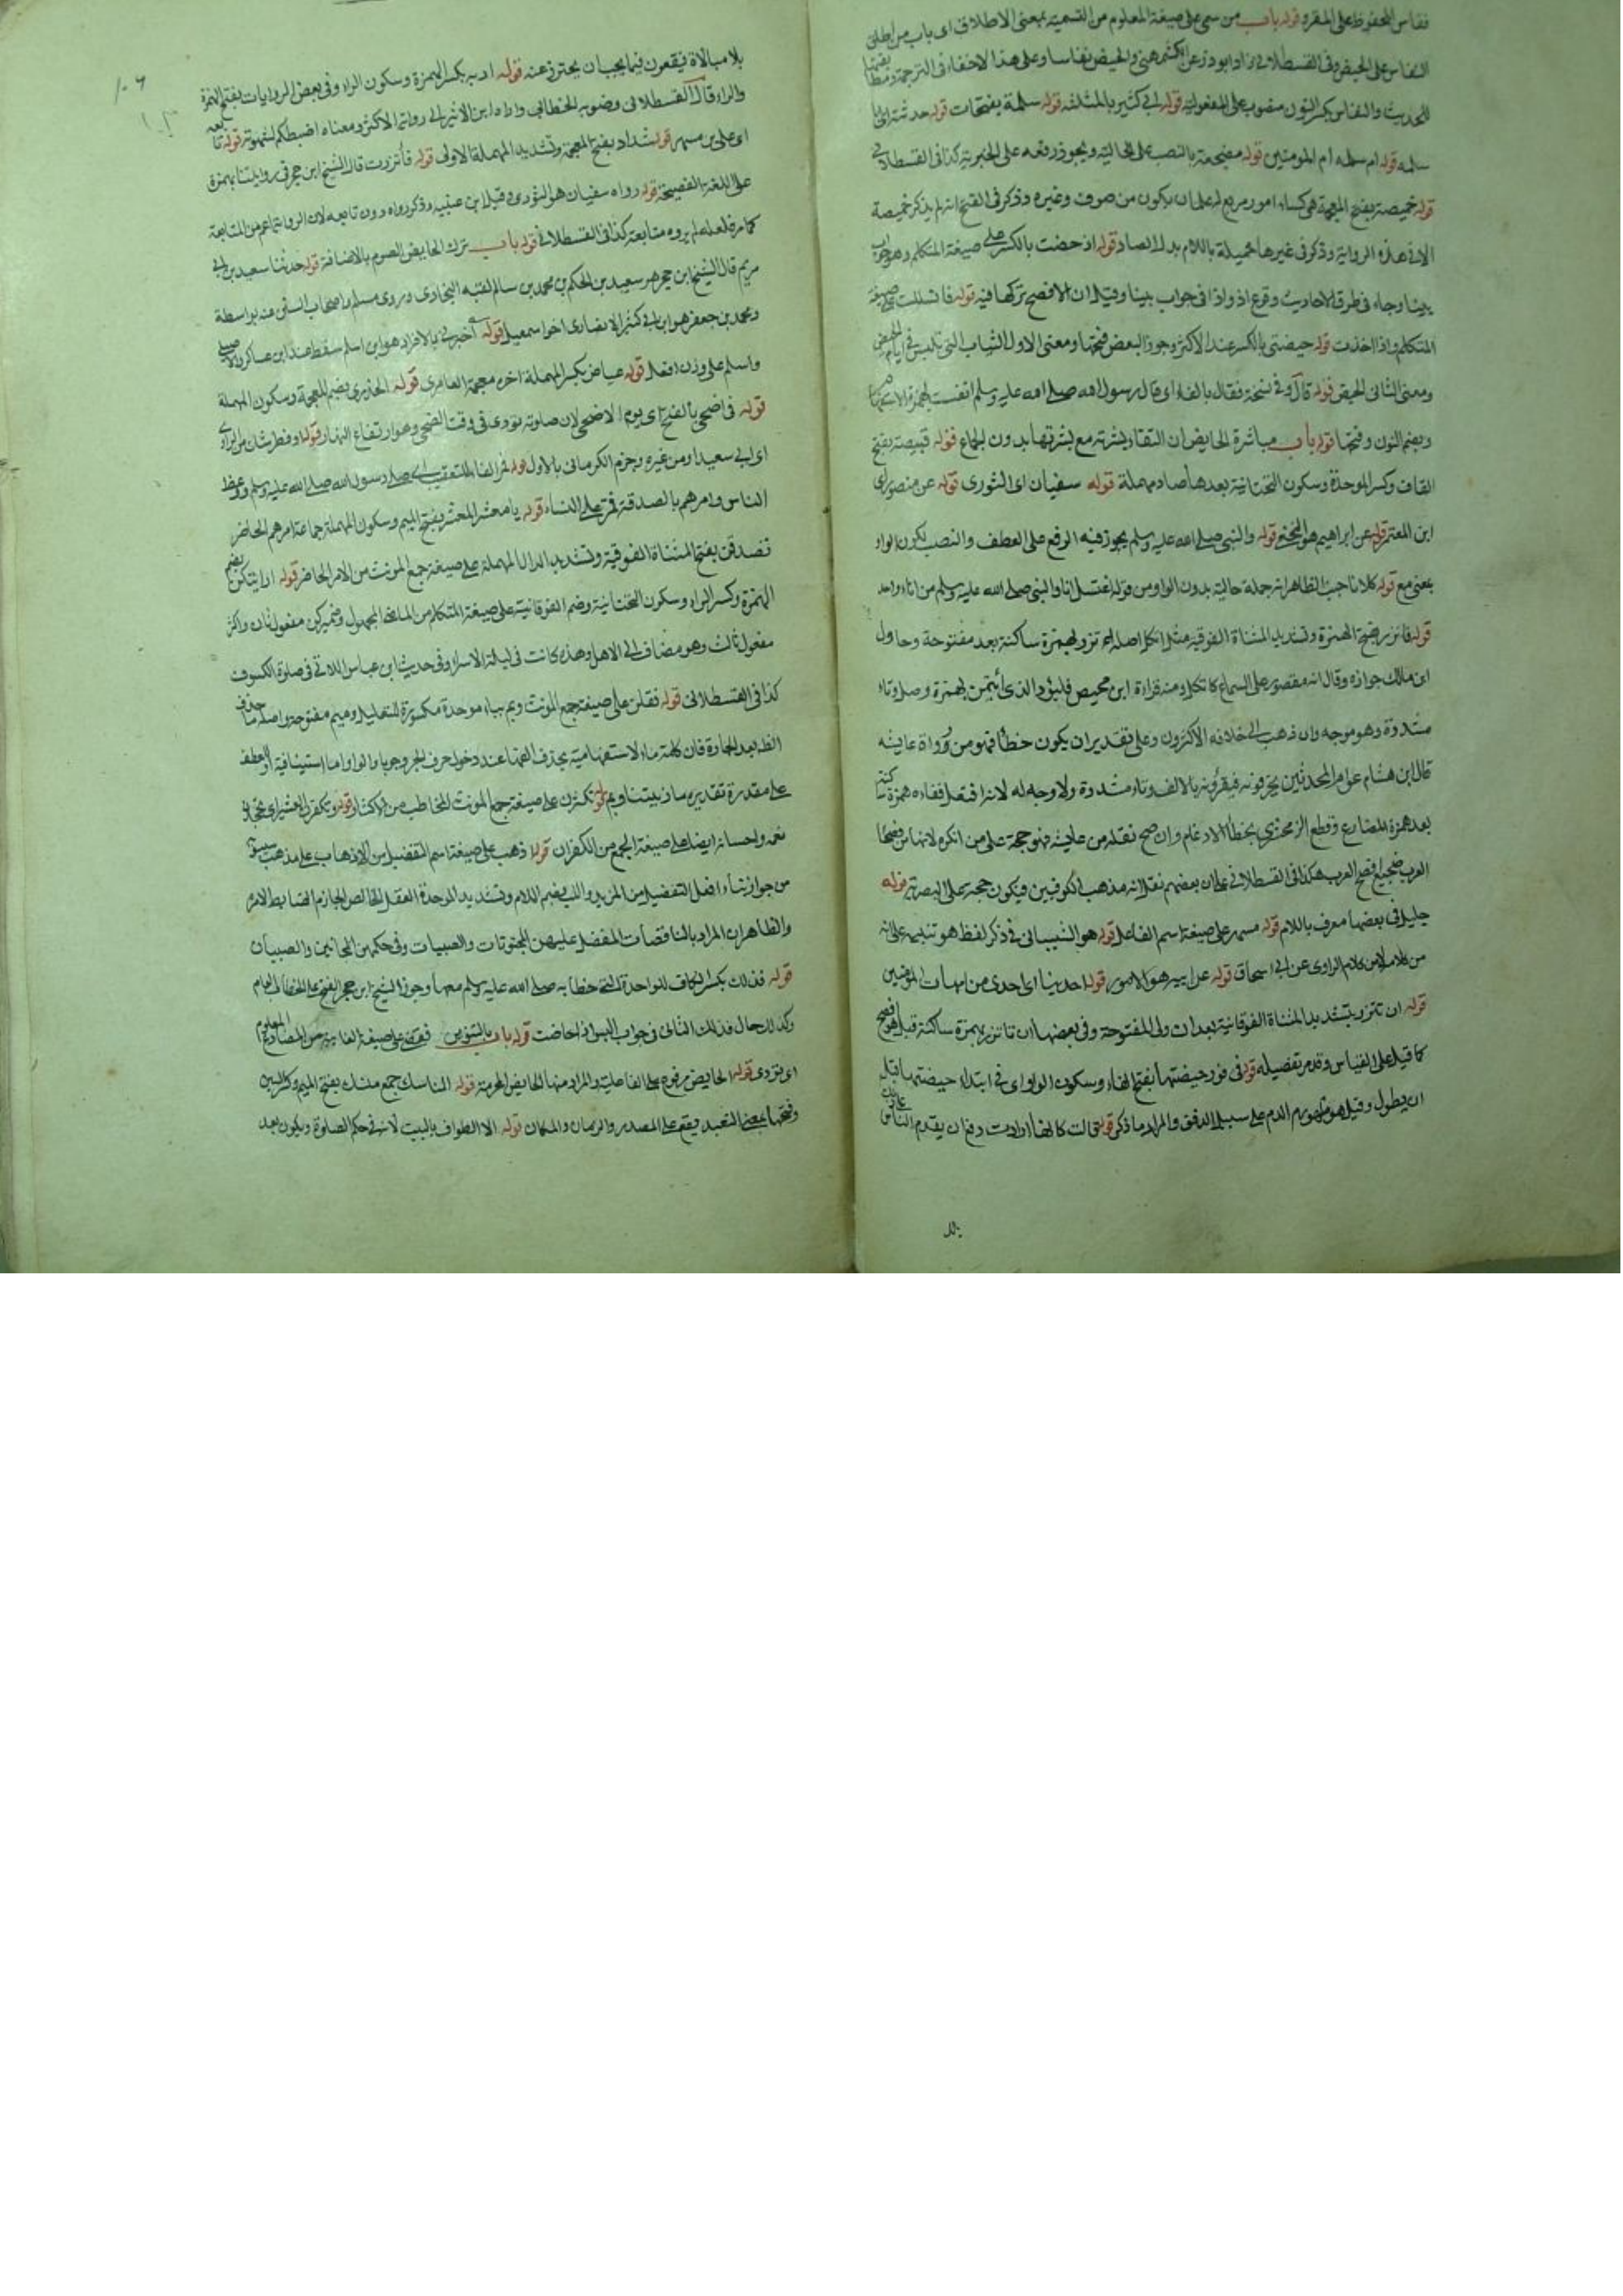 فقاس المحفوظ على المقرو قوله باب من سمى على صيغة المعلوم من التسمية بمعنى الاطلاق اى باب من اطلق
النفاس على الحيض وفى القسطلانى زاد ابو ذر عن الكشمهنى والحيض نفاسا وعلى هذا لا خفاء فى الترجمة ومطابقتها
للحديث والنفاس بكسر النون منصوب على المفعولية قوله ابى كثير بالمثلثة قوله سلمة بفتحات قوله حدثته اى ابا
سلمه قوله ام سلمه ام المومنين قوله مضجعة بالنصب على الحالية ويجوز رفعه على الخبرية كذا فى القسطلانى
قوله خميصة بفتح المعجمة هى كساء اسود مربع له علمان يكون من صوف وغيره وذكر فى الفتح انه لم يذكر خميصة
الا فى هذه الرواية وذكر فى غيرها خميلة باللام بدل الصاد قوله اذ حضت بالكسر على صيغة المتكلم وهو جواب
بينا وجاء فى طرق الاحاديث وقوع اذ واذا فى جواب بينا وقيل ان الافصح تركها فيه قوله فانسللت على صيغة
المتكلم قوله فاخذت قوله حيضتى بالكسر عند الاكثر وجوز البعض فتحها ومعنى الاول الثياب التى تلبس فى ايام الحيض
ومعنى الثانى الحيض قوله قال وفى نسخة فقال بالفاء اى قال رسول الله صلى الله عليه وسلم انفست بهمزة الاستفهام
وبضم النون وفتحها قوله باب مباشرة الحايض اى التقاء بشرته مع بشرتها بدون الجماع قوله قبيصة بفتح
القاف وكسر الموحدة وسكون التحتانية بعدها صاد مهملة قوله سفيان اى الثورى قوله عن منصور اى
ابن المعتمر قوله عن ابراهيم هو النخعى قوله والنبى صلى الله عليه وسلم يجوز فيه الرفع على العطف والنصب لكون الواو
بمعنى مع قوله كلانا جنب الظاهر انه جملة حالية بدون الواو من قوله اغتسل انا والنبى صلى الله عليه وسلم من اناء واحد
قوله فاتزر بفتح الهمزة وتشديد المثناة الفوقية مثل اتكل اصله اءتزر بهمزة ساكنة بعد مفتوحة وحاول
ابن مالك جوازه وقال انه مقصور على السماع كاتكل ومنه قراءة ابن محيصن فليؤد الذى ائتمن بهمزة وصل وتاء
مشددة وهو موجه وان ذهب الى خلافه الاكثرون وعلى تقدير ان يكون خطأ فهو من رواة عايشه
قال ابن هشام عوام المحدثين يحرفونه فيقرؤنه بالالف وتاء مشددة ولا وجه له لانه افتعل ففاءه همزة ساكنة
بعد همزة المضارع وقطع الزمخشرى بخطأ الادغام وان صح نقله من عايشه فهو حجة على من انكره لانها من فصحاء
العرب هكذا فى القسطلانى على ان بعضهم نقل انه مذهب الكوفيين فيكون حجة على البصرية قوله
خليل فى بعضها معرف باللام قوله مسهر على صيغة اسم الفاعل قوله هو الشيبانى فى ذكر لفظ هو تنبيه على انه
من كلامه لا من كلام الراوى عن ابى اسحاق قوله عن ابيه هو الاسود قوله احدينا اى احدى من امهات المومنين
قوله ان تتزر بتشديد المثناة الفوقانية بعد اولى المفتوحة وفى بعضها ان تاتزر بهمزة ساكنة قيل هو افصح
كما قيل على القياس وقد مر تفصيله قوله فى فور حيضتها بفتح الفاء وسكون الواو اى فى ابتداء حيضتها قبل
ان يطول وقيل هو ظهور الدم على سبيل الدفق والمراد ما ذكر قوله قالت كانها ارادت دفع ان يقدم الناس
بلا
بلا مبالاة فيقعون فيما يجب ان يحترز عنه قوله اربه بكسر الهمزة وسكون الراء وفى بعض الروايات بفتح الهمزة
والراء قال القسطلانى وصوبه الخطابى وابن الاثير الى رواية الاكثر ومعناه اضبطكم لشهوته قوله تابعه
اى على بن مسهر قوله شداد بفتح المعجمة وتشديد المهملة الاولى قوله فاتزرت قال الشيخ ابن حجر فى روايتنا بهمزة
على اللغة الفصيحة قوله رواه سفيان هو الثورى وقيل ابن عيينه وذكر رواه دون تابعه لان الرواية اعم من المتابعة
كما مر فلعله لم يروه متابعة كذا فى القسطلانى قوله باب ترك الحايض الصوم بالاضافة قوله حدثنا سعيد بن ابى
مريم قال الشيخ ابن حجر هو سعيد بن الحكم بن محمد بن سالم لقيه البخارى وروى مسلم واصحاب السنن عنه بواسطة
ومحمد بن جعفر هو ابن ابى كثير الانصارى اخو اسمعيل قوله اخبرنى بالافراد هو ابن اسلم سقط عند ابن عساكر والاصيلى
واسلم على وزن افعل قوله عياض بكسر المهملة اخره معجمة العامرى قوله الخدرى بضم المعجمة وسكون المهملة
قوله فى اضحى بالفتح اى يوم الاضحى لان صلوته تؤدى فى وقت الضحى وهو ارتفاع النهار قوله او فطر شك من الراوى
اى ابى سعيد او من غيره وجزم الكرمانى بالاول قوله فمر الفاء للتعقيب اى صلى رسول الله صلى الله عليه وسلم ووعظ
الناس وامرهم بالصدقة فمر على النساء قوله يا معشر المعشر بفتح الميم وسكون المهملة جماعة امرهم الحاضر
تصدقن بفتح المثناة الفوقية وتشديد الدال المهملة على صيغة جمع المونث من الامر الحاضر قوله اريتكن بضم
الهمزة وكسر الراء وسكون التحتانية وضم الفوقانية على صيغة المتكلم من الماضى المجهول وضمير كن مفعول ثان واكثر
مفعول ثالث وهو مضاف الى الاهل وهذه كانت فى ليلة الاسراء وفى حديث ابن عباس اللاتى فى صلوة الكسوف
كذا فى القسطلانى قوله فقلن على صيغة جمع المونث وبم بباء موحدة مكسورة للتعليل وميم مفتوحة واصله ما حذف
الفه بعد الجارة فان كلمة ماء الاستفهامية يحذف الفها عند دخول حرف الجر وجوبا والواو اما استينافية او للعطف
على مقدرة تقديره ما ذنبنا وبم قوله تكثرن على صيغة جمع المونث المخاطب من الاكثار قوله وتكفرن العشير اى تجحدن
نعمه واحسانه ايضا على صيغة الجمع من الكفران قوله اذهب على صيغة اسم التفضيل من الاذهاب على مذهب سيبويه
من جواز بناء افعل التفضيل من المزيد واللب بضم اللام وتشديد الموحدة العقل الخالص الحازم الضابط لامره
والظاهر ان المراد بالناقصات المفضل عليهن المجنونات والصبيات وفى حكمهن المجانين والصبيان
قوله فذلك بكسر الكاف للواحدة التى خطابه صلى الله عليه وسلم معها وجوز الشيخ ابن حجر الفتح على الخطاب العام
وكذا الحال فذلك الثانى فى جواب اليس اذا حاضت قوله باب بالتنوين تقضى على صيغة الغايبة من المضارع المعلوم
اى تؤدى قوله الحايض مرفوع على الفاعلية والمراد منها الحايض المحرمة قوله المناسك جمع منسك بفتح الميم وكسر السين
وفتحها بمعنى التعبد فيقع على المصدر والزمان والمكان قوله الا الطواف بالبيت لانه فى حكم الصلوة ويكون بعد